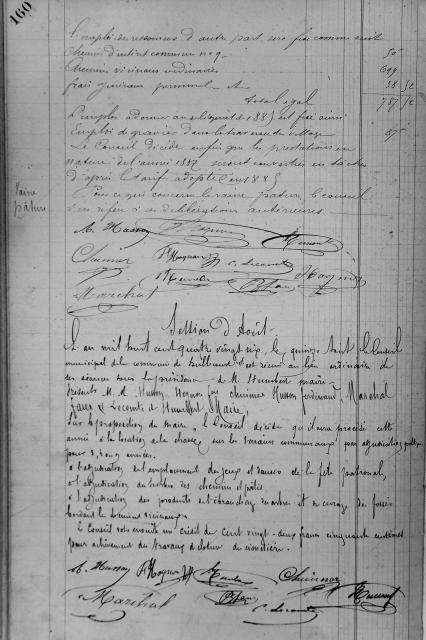 160
L'emploi des ressources d'autre part sera fixé comme suit
Chemin d'intérêt commun n° 9 50
Chemins vicinaux ordinaires 699
frais généraux personnel &c 38 52
total égal 787 52
L'emploi à donner au reliquat de 1885 est fixé ainsi
Emploi de graviers dans la traverse du village 87
Le Conseil décide enfin que les prestations en
nature de l'année 1887 seront converties en tâches
d'après le tarif adopté en 1885
Vaine
pâture
Pour ce qui concerne la vaine pâture, le conseil
s'en réfère à ses délibérations antérieures
M. Husson
Humbert
Chuinor
P. Hognon
C. Lecomte
Marchal
Session d'Août
L'an mil huit cent quatre vingt six, le quinze Août le Conseil
municipal de la commune de s'est réuni au lieu ordinaire de
ses séances sous la présidence de M. Humbert maire
Présents M. M. Husson, Hognon, Chuinor, Husson Ferdinand, Marchal
& Lecomte & Humbert Maire,
Sur la proposition du maire, le Conseil décide qu'il sera procédé cette
année à la location de la chasse sur les terrains communaux par adjudication publique
pour 3, 6 ou 9 années.
à l'adjudication de l'emplacement des jeux et danses de la fête patronale,
à l'adjudication des herbes des chemins et pâtis
à l'adjudication des produits de l'ébranchage des arbres et du curage des fossés
bordant les chemins vicinaux.
Le Conseil vote ensuite un crédit de Cent vingt-deux francs cinquante centimes
pour achèvement des travaux de clôture du cimetière.
M. Husson
P. Hognon
Chuinor
Humbert
Marchal
C. Lecomte